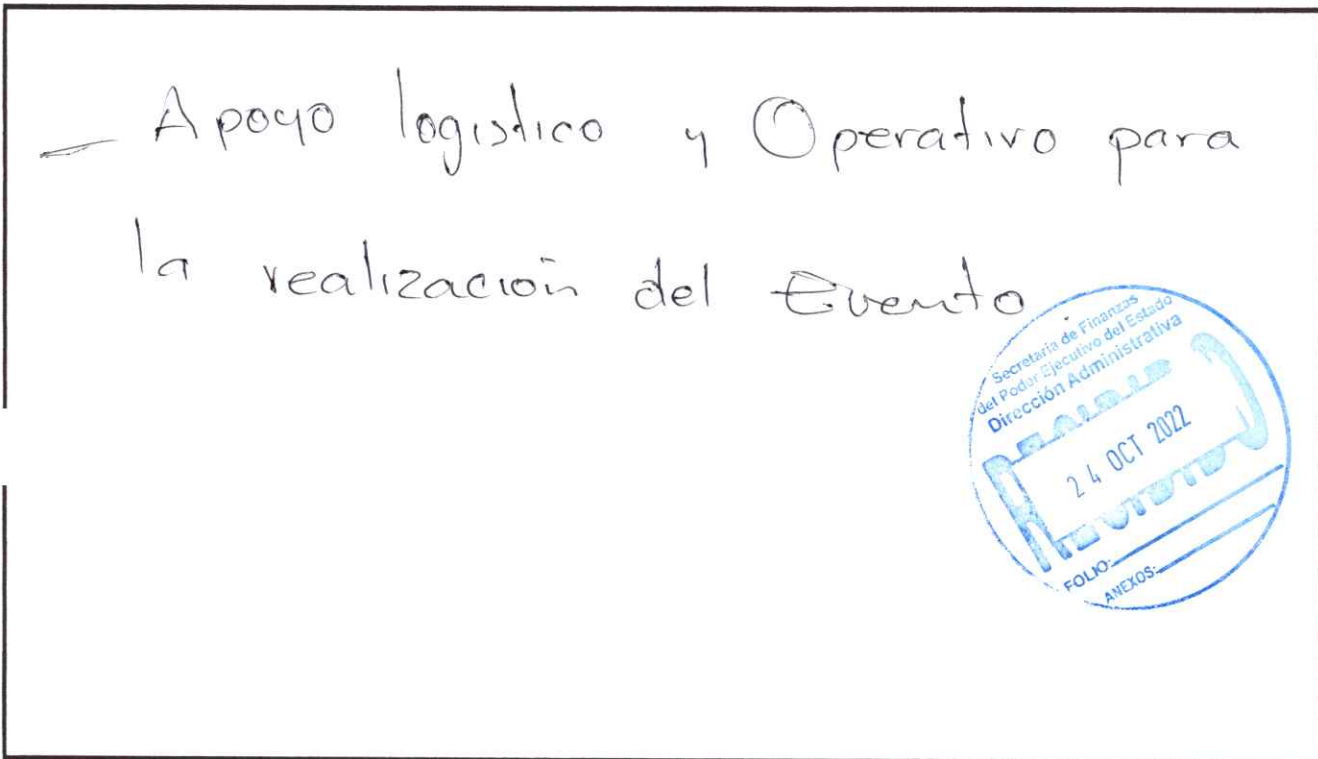 – Apoyo logistico y Operativo para
la realización del Evento.
Secretaria de Finanzas
del Poder Ejecutivo del Estado
Dirección Administrativa
RECIBIDO
24 OCT 2022
FOLIO:
ANEXOS: